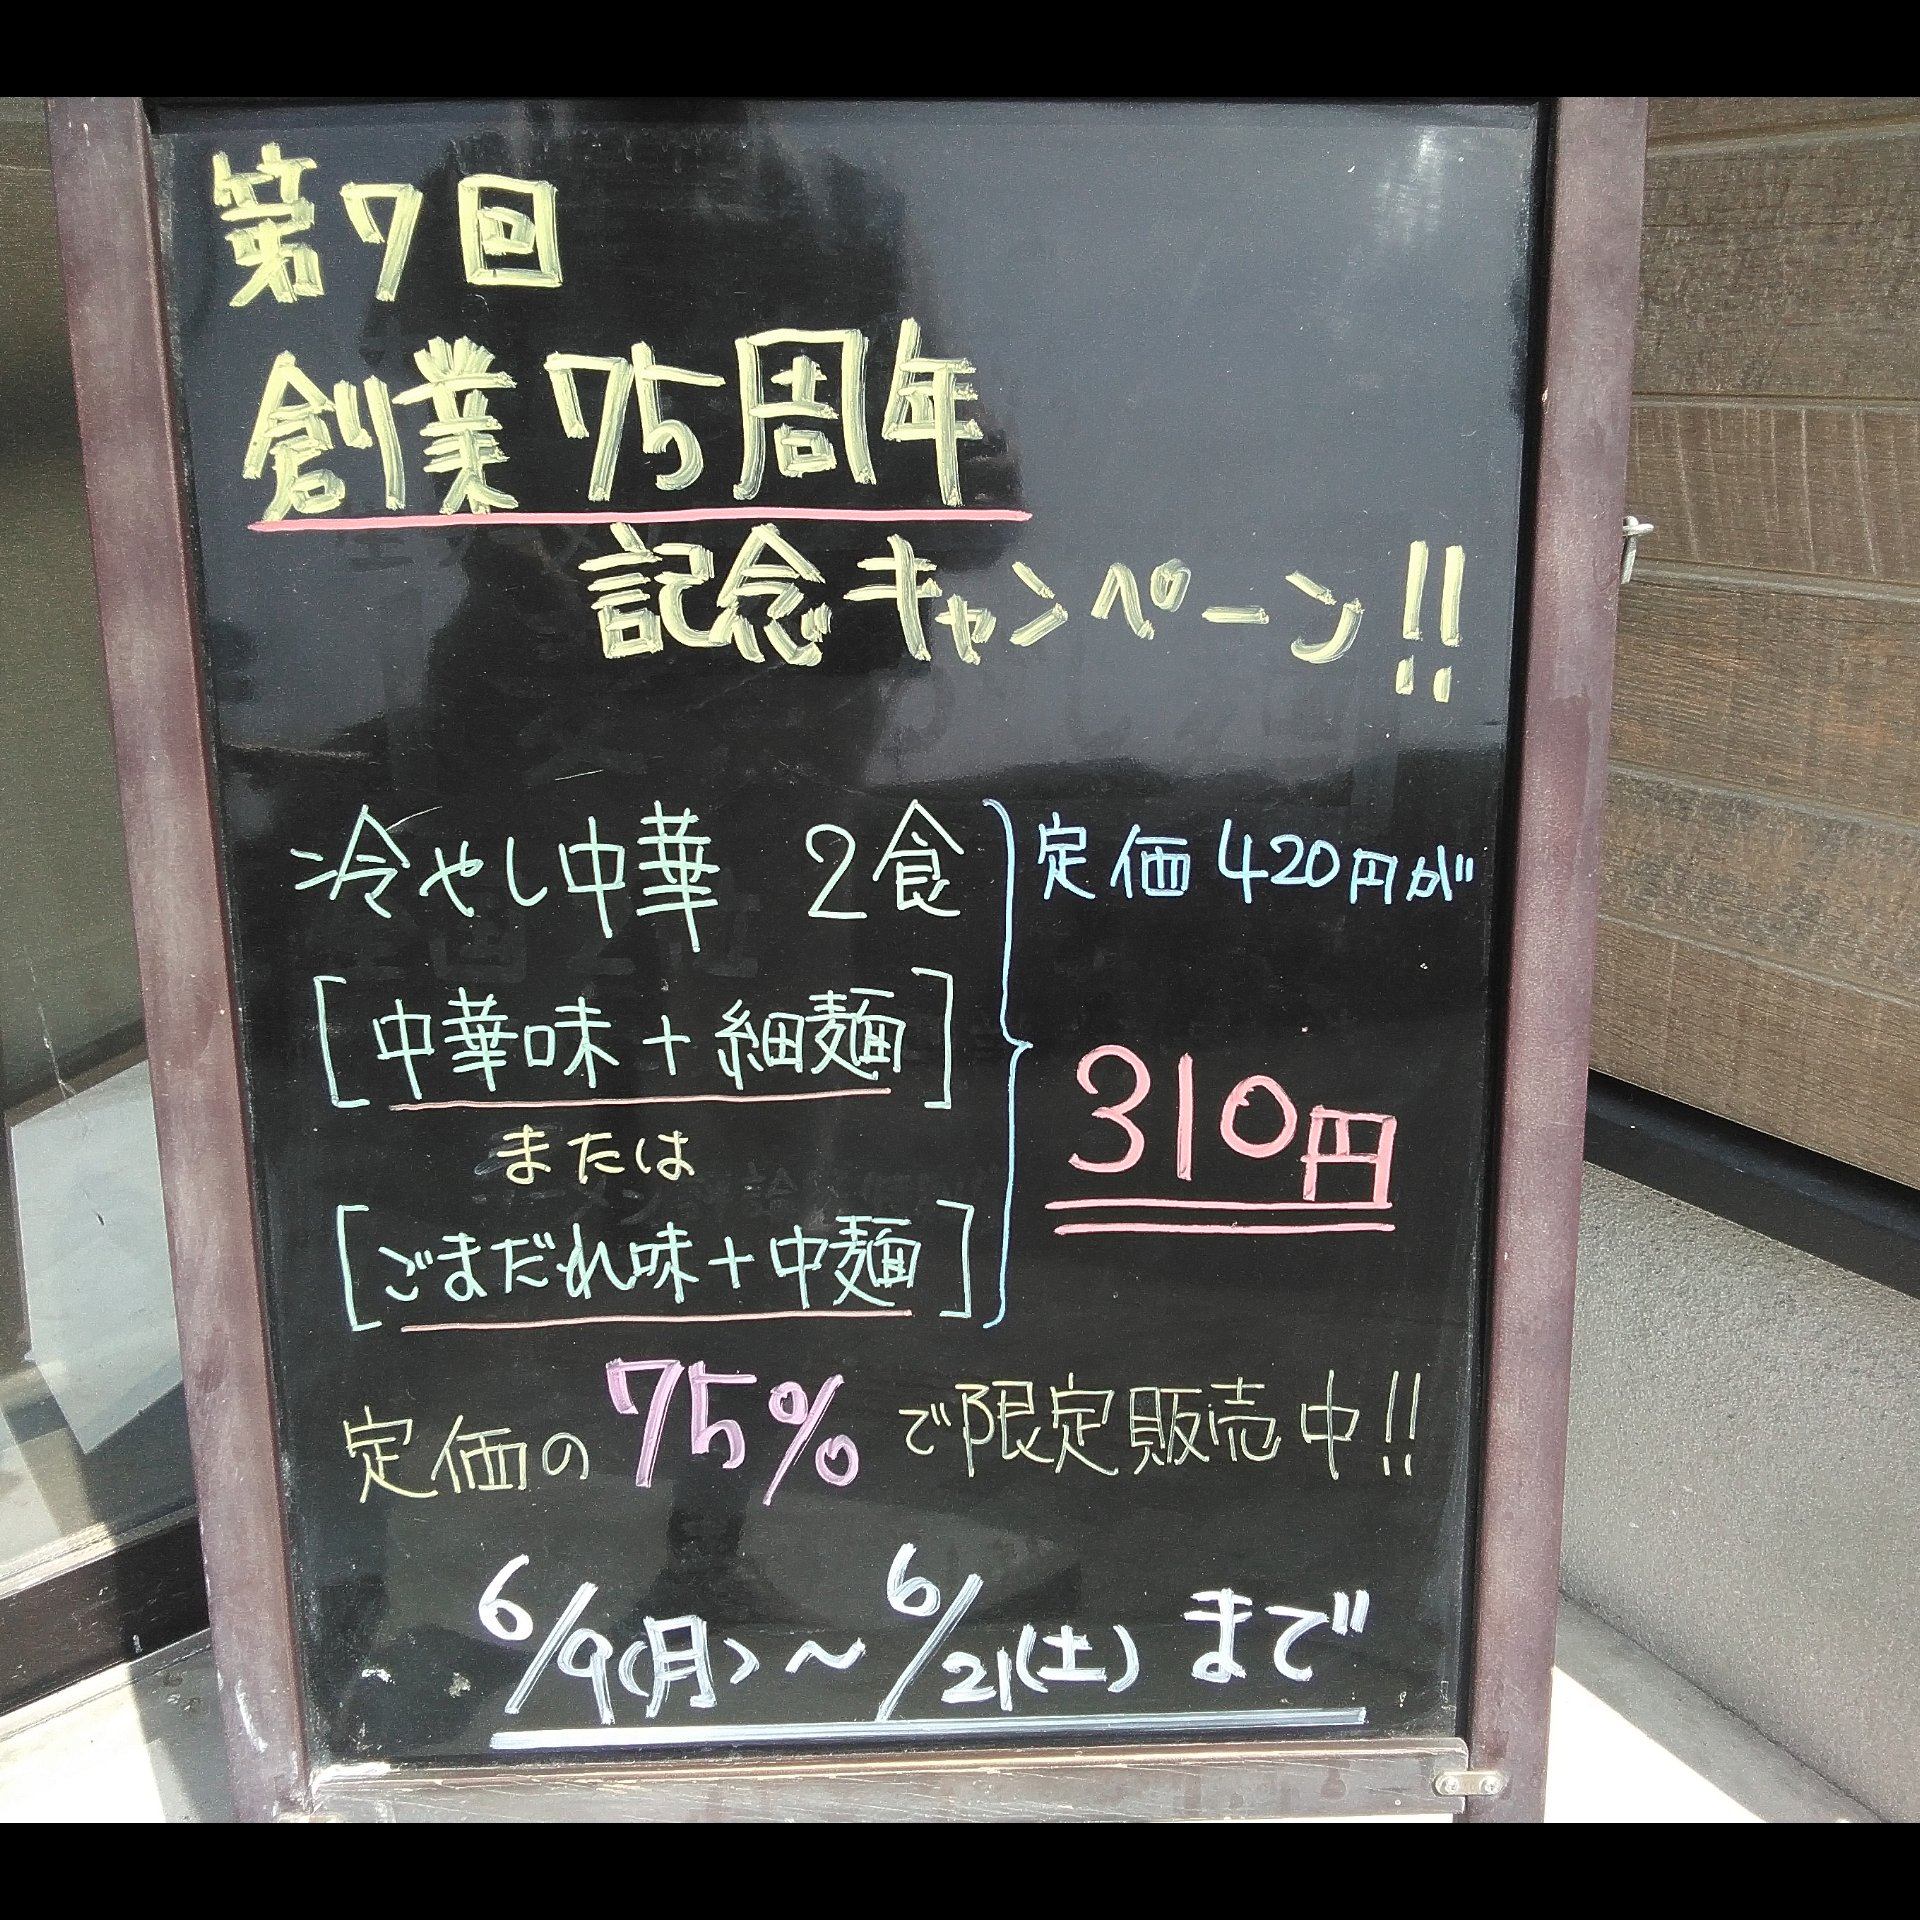 第7回
創業75周年
記念キャンペーン!!
冷やし中華 2食
定価420円が
[中華味+細麺]
310円
または
[ごまだれ味+中麺]
定価の75%で限定販売中!!
6/9(月)~6/21(土)まで